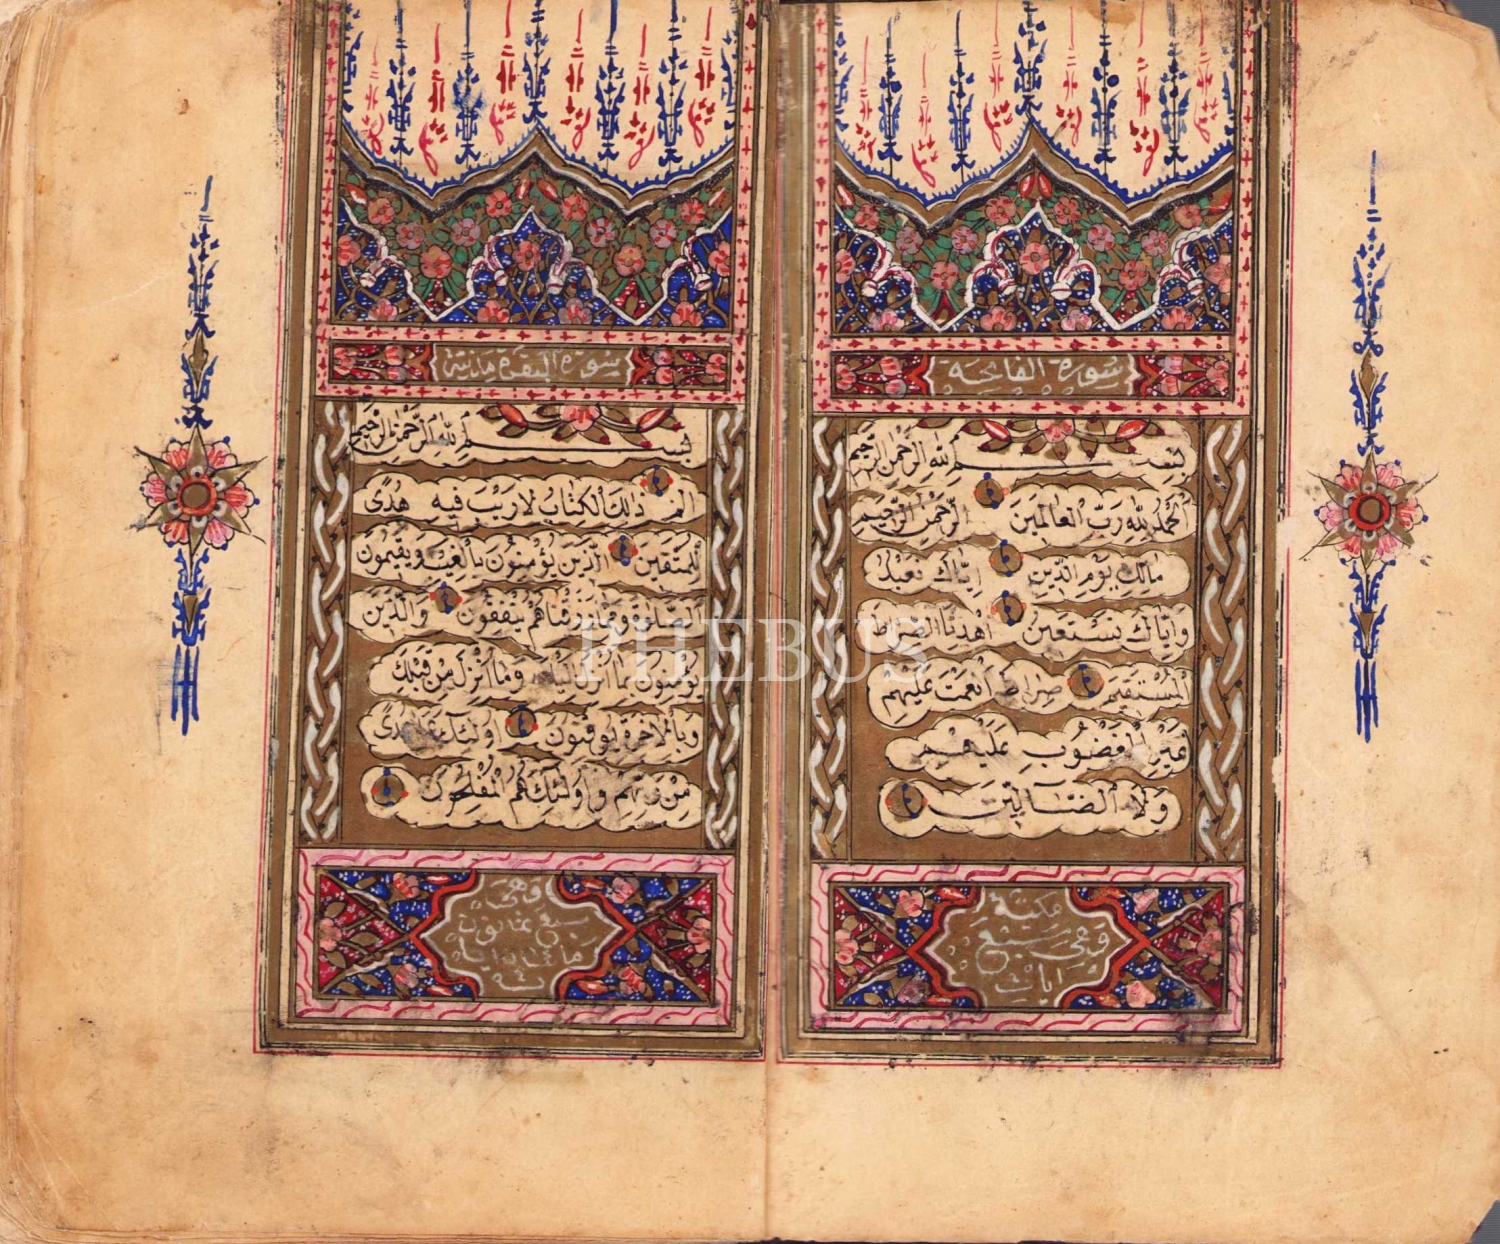 سورة الفاتحة
بسم الله الرحمن الرحيم
الحمد لله رب العالمين الرحمن الرحيم
مالك يوم الدين اياك نعبد
واياك نستعين اهدنا الصراط
المستقيم صراط انعمت عليهم
غير المغضوب عليهم
ولا الضالين
مكية
وهي سبع
ايات
سورة البقرة مدنية
بسم الله الرحمن الرحيم
الم ذلك الكتاب لا ريب فيه هدى
للمتقين الذين يؤمنون بالغيب ويقيمون
الصلوة ومما رزقناهم ينفقون والذين
يؤمنون بما انزل اليك وما انزل من قبلك
وبالاخرة يوقنون اولئك هدى
من ربهم واولئك هم المفلحون
وهي
سبع ثمانون
PHEBUS